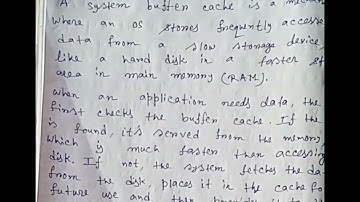 A system buffer cache is a
where an OS stores frequently
data from a slow storage device,
like a hard disk in a faster
area in main memory (RAM).
when an application needs data, the
first checks the buffer cache. If the
is found, it's served from the memory,
which is much faster then accessing
disk. If not, the system fetches the
from the disk, places it in the cache
future use and then